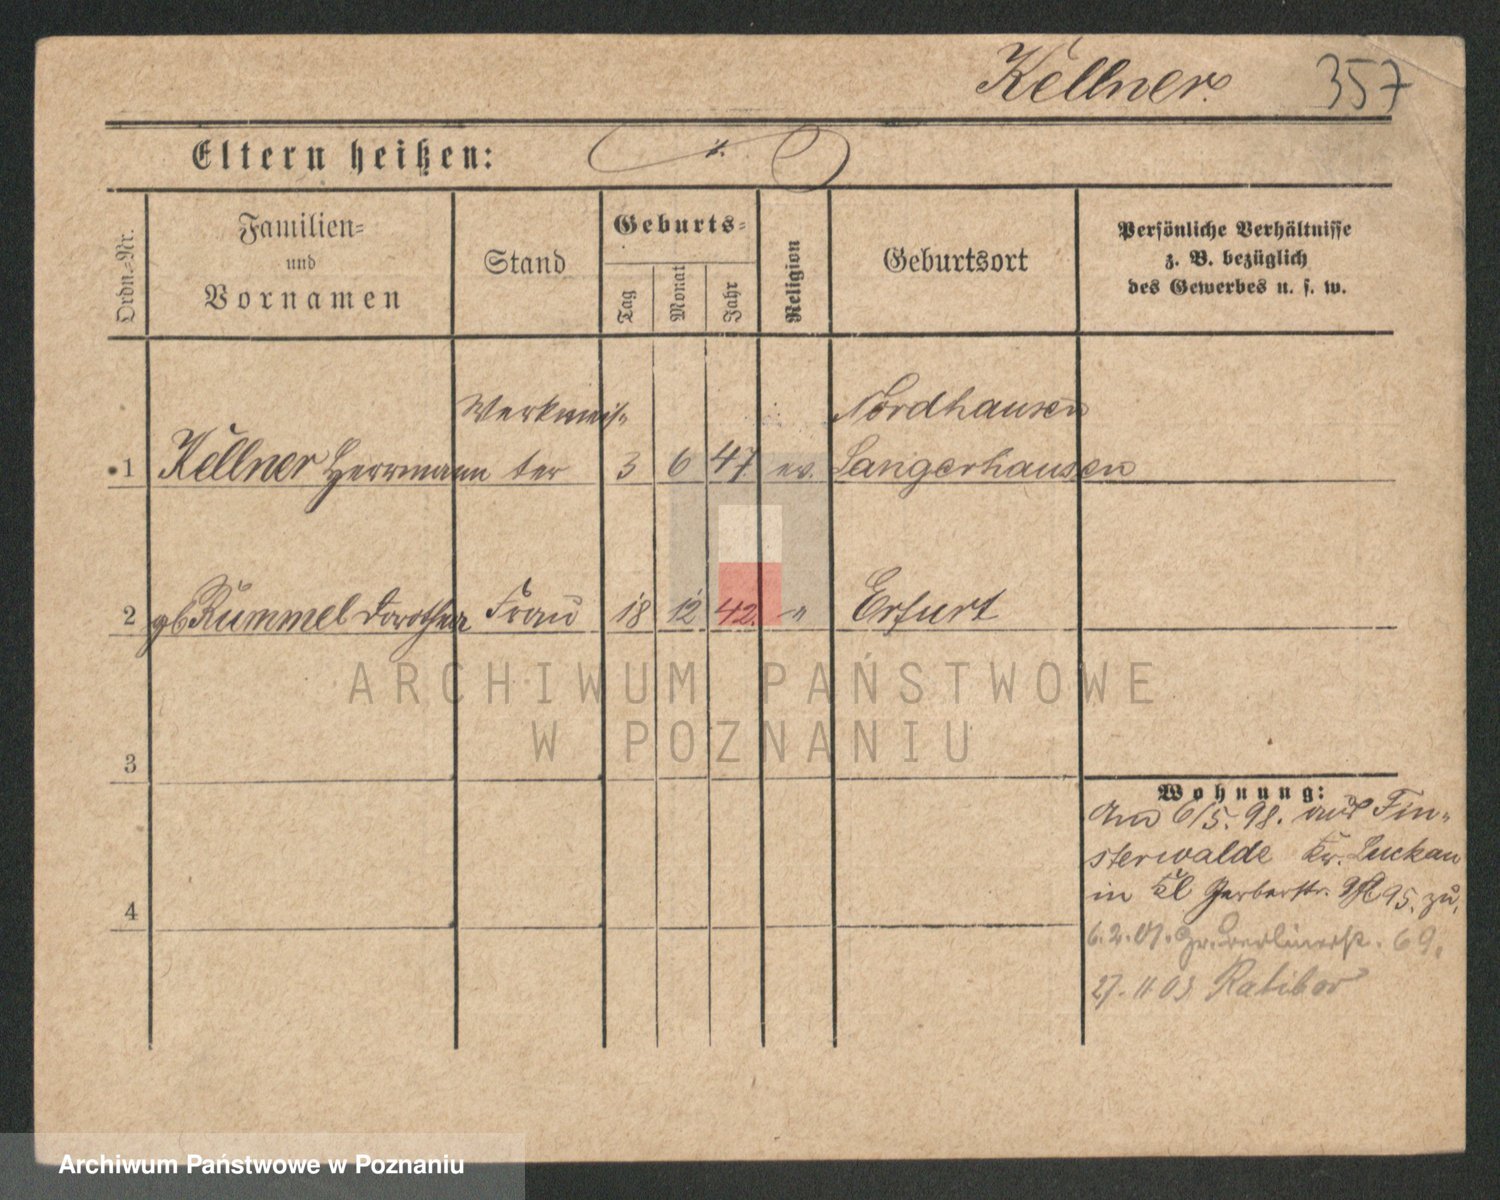 Kellner.
357
Eltern heißen: /.
Ordn.-Nr.
Familien-
und
Vornamen
Stand
Geburts-
Tag
Monat
Jahr
Religion
Geburtsort
Persönliche Verhältnisse
z. B. bezüglich
des Gewerbes u. s. w.
Werkmeis- Nordhausen
1 Kellner Herrmann ter 3 6 47 ev. Sangerhausen
2 gb Rummel Dorothea Frau 18 12 42. " Erfurt
ARCHIWUM PAŃSTWOWE
W POZNANIU
3
Wohnung:
Am 6/5. 98. aus Fin-
sterwalde Kr. Luckau
in Kl Gerberstr. № 95. zu.
6.2.01. Gr. Berlinerst. 69.
27.11 03 Ratibor
4
Archiwum Państwowe w Poznaniu